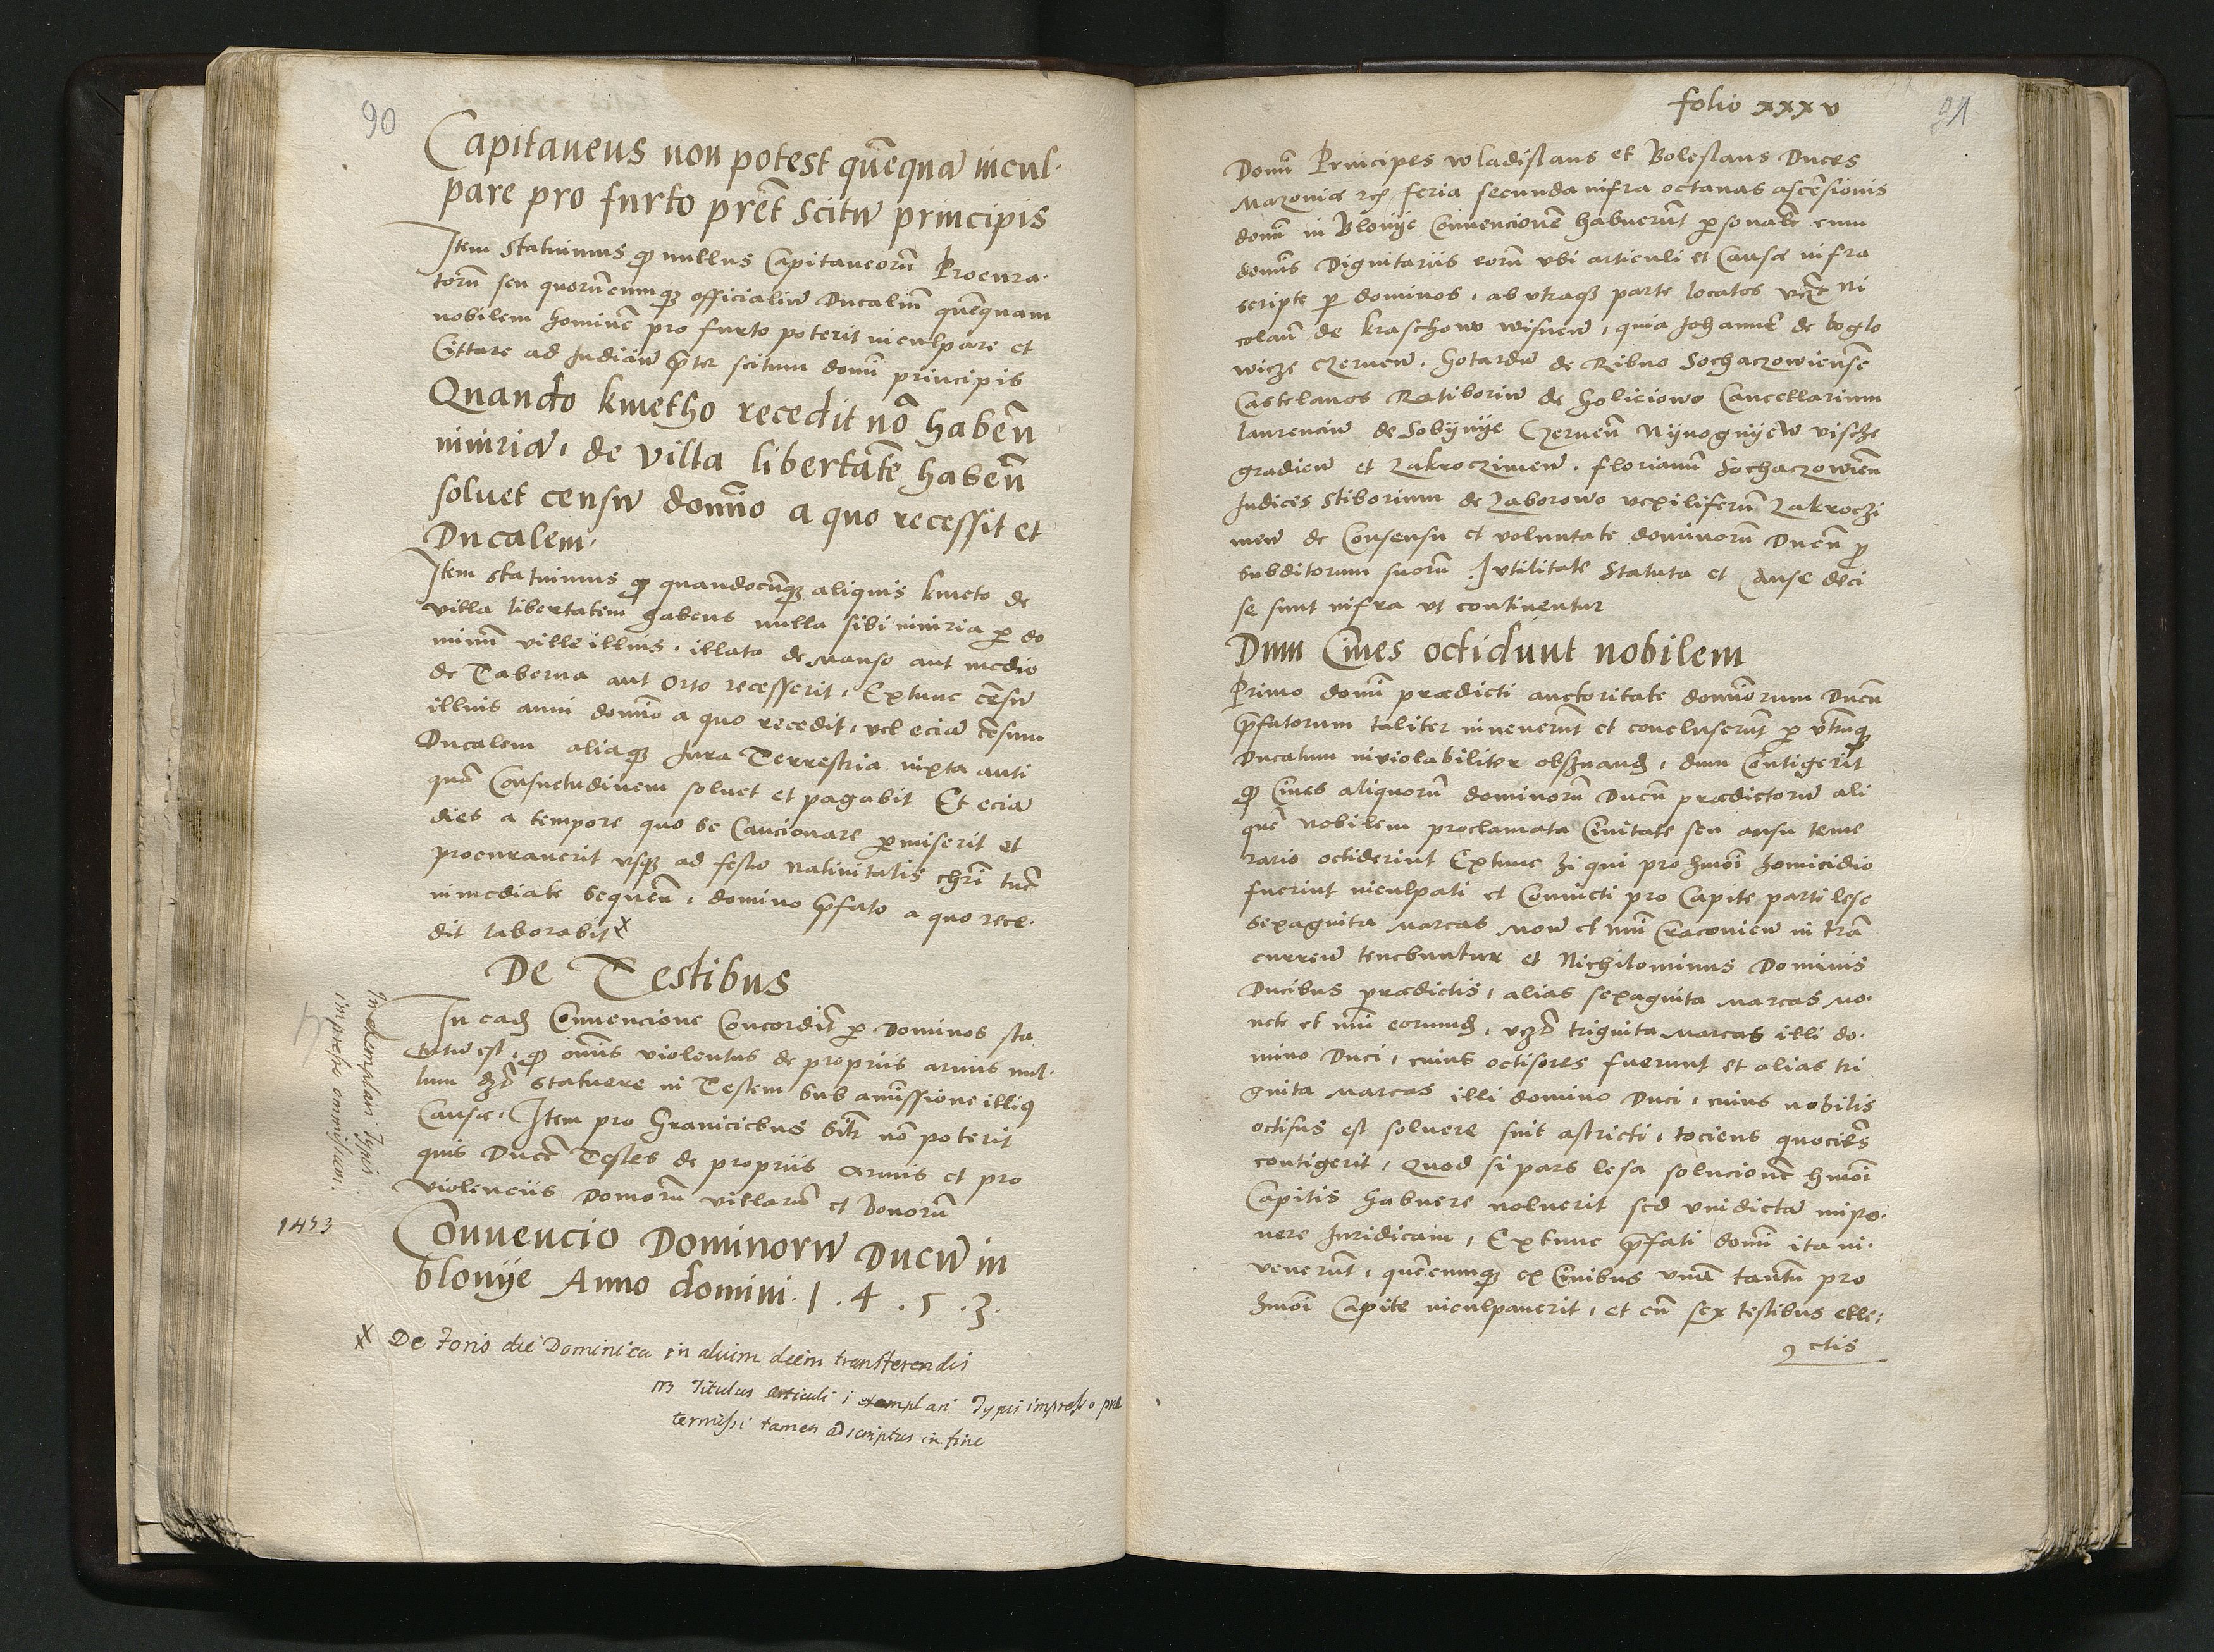 90
Capitaneus non potest quēqua incul-
pare pro furto pret scitu principis
Item statuimus q nullus Capitaneorū Procura-
torū seu quorūcumq officialiū Ducaliū quēquam
nobilem hominē pro furto poterit inculpare et
Cittare ad Iudiciū pter scitum domī principis
Quando kmetho recedit nō habēn
iniuriā, de villa libertatē habēn
soluet censū domīo a quo recessit et
Ducalem.
Item statuimus q quandocūq aliquis kmeto de
villa libertatem habens nulla sibi iniuria p do
minū ville illius, illata de manso aut medio
de Taberna aut Orto recesserit, Extunc cēsū
illius anni domīo a quo recedit, vel eciā cēsum
Ducalem aliaq Iura Terrestria iuxta anti
quā Consuetudinem soluet et pagabit Et eciā
dies a tempore quo se Caucionare pmiserit et
procurauerit vsq ad festū Natiuitatis chri tūc
inmediate sequen, domino pfato a quo rece-
dit laborabit x
De Testibus
In eadē Conuencione Concordit p Dominos sta
tutū est, q omīs violentus de propriis armis nul-
lum statuere in Testem sub amissione illiq
Cause, Item pro Granicicbus silr nō poterit
quis Ducē Testes de propriis armis et pro
violenciis Domorū villarū et bonorū
In exemplari Typis
impresso ommissum.
1453
Conuencio Dominorū Ducū in
blonije Anno domini. 1. 4. 5. 3.
x De Foris die Dominica in aluim diem transferendis
NB Titulus articuli i exemplari Typis impresso præ
termissi tamen adscriptus in fine
folio xxxv
91
Domī Principes wladislaus et Boleslaus Duces
Mazoniæ feria secunda infra octauas ascēsionis
domī in Blonije Conuencionē habuerūt psonalr cum
domīs Dignitariis eorū vbi articuli et Causæ infra
scripte p dominos, ab vtraq parte locatos vcz Ni
colaū de kraschowo wisnen, quia Johannē de boglo
wicze Czernen, Gotardū de Ribno Sochaczowiensē
Castelanos Ratiboriū de Goliciowo Cancellarium
laurenciū de Sobijnije Czernen Nijnognijew vische
gradien et Zakroczimen, florianū Sochaczowien
Iudices Stiborium de Zaborowo vexiliferū Zakroczi
men de Consensu et voluntate dominorū Ducū p
subditorum suorū vtilitate Statuta et Cause deci
se sunt infra vt continentur
Dum Ciues occidunt nobilem
Primo domī prædicti auctoritate domīorum Ducū
pfatorum taliter inuenerūt et concluserūt p vtrūq
Ducatum inuiolabiliter obseruand, dum Contigerit
q Ciues aliquorū dominorū Ducū prædictorū ali
quē Nobilem proclamata Ciuitate seu ausu teme
rario occiderint Extunc hi qui pro hmoi homicidio
fuerint inculpati et Conuicti pro Capite parti lese
sexaginta Marcas Mon et nūi Cracouien in trā
curren tenebuntur et Nichilominus Dominis
Ducibus prædictis, alias sexaginta Marcas Mo-
nete et nūi eorumd, vcz triginta Marcas illi do-
mino Duci, cuius occisores fuerunt et alias tri
ginta Marcas illi domino Duci, cuius nobilis
occisus est soluere sint astricti, tociens quociēs
contigerit, Quod si pars lesa solucionē hmoi
Capitis habuere noluerit sed vindictā inpo-
nere Iuridicam, Extunc pfati domī ita in-
venerūt, quēcumq ex Ciuibus vnū tantū pro
hmoi Capite inculpauerit, et cū sex testibus elle-
ctis